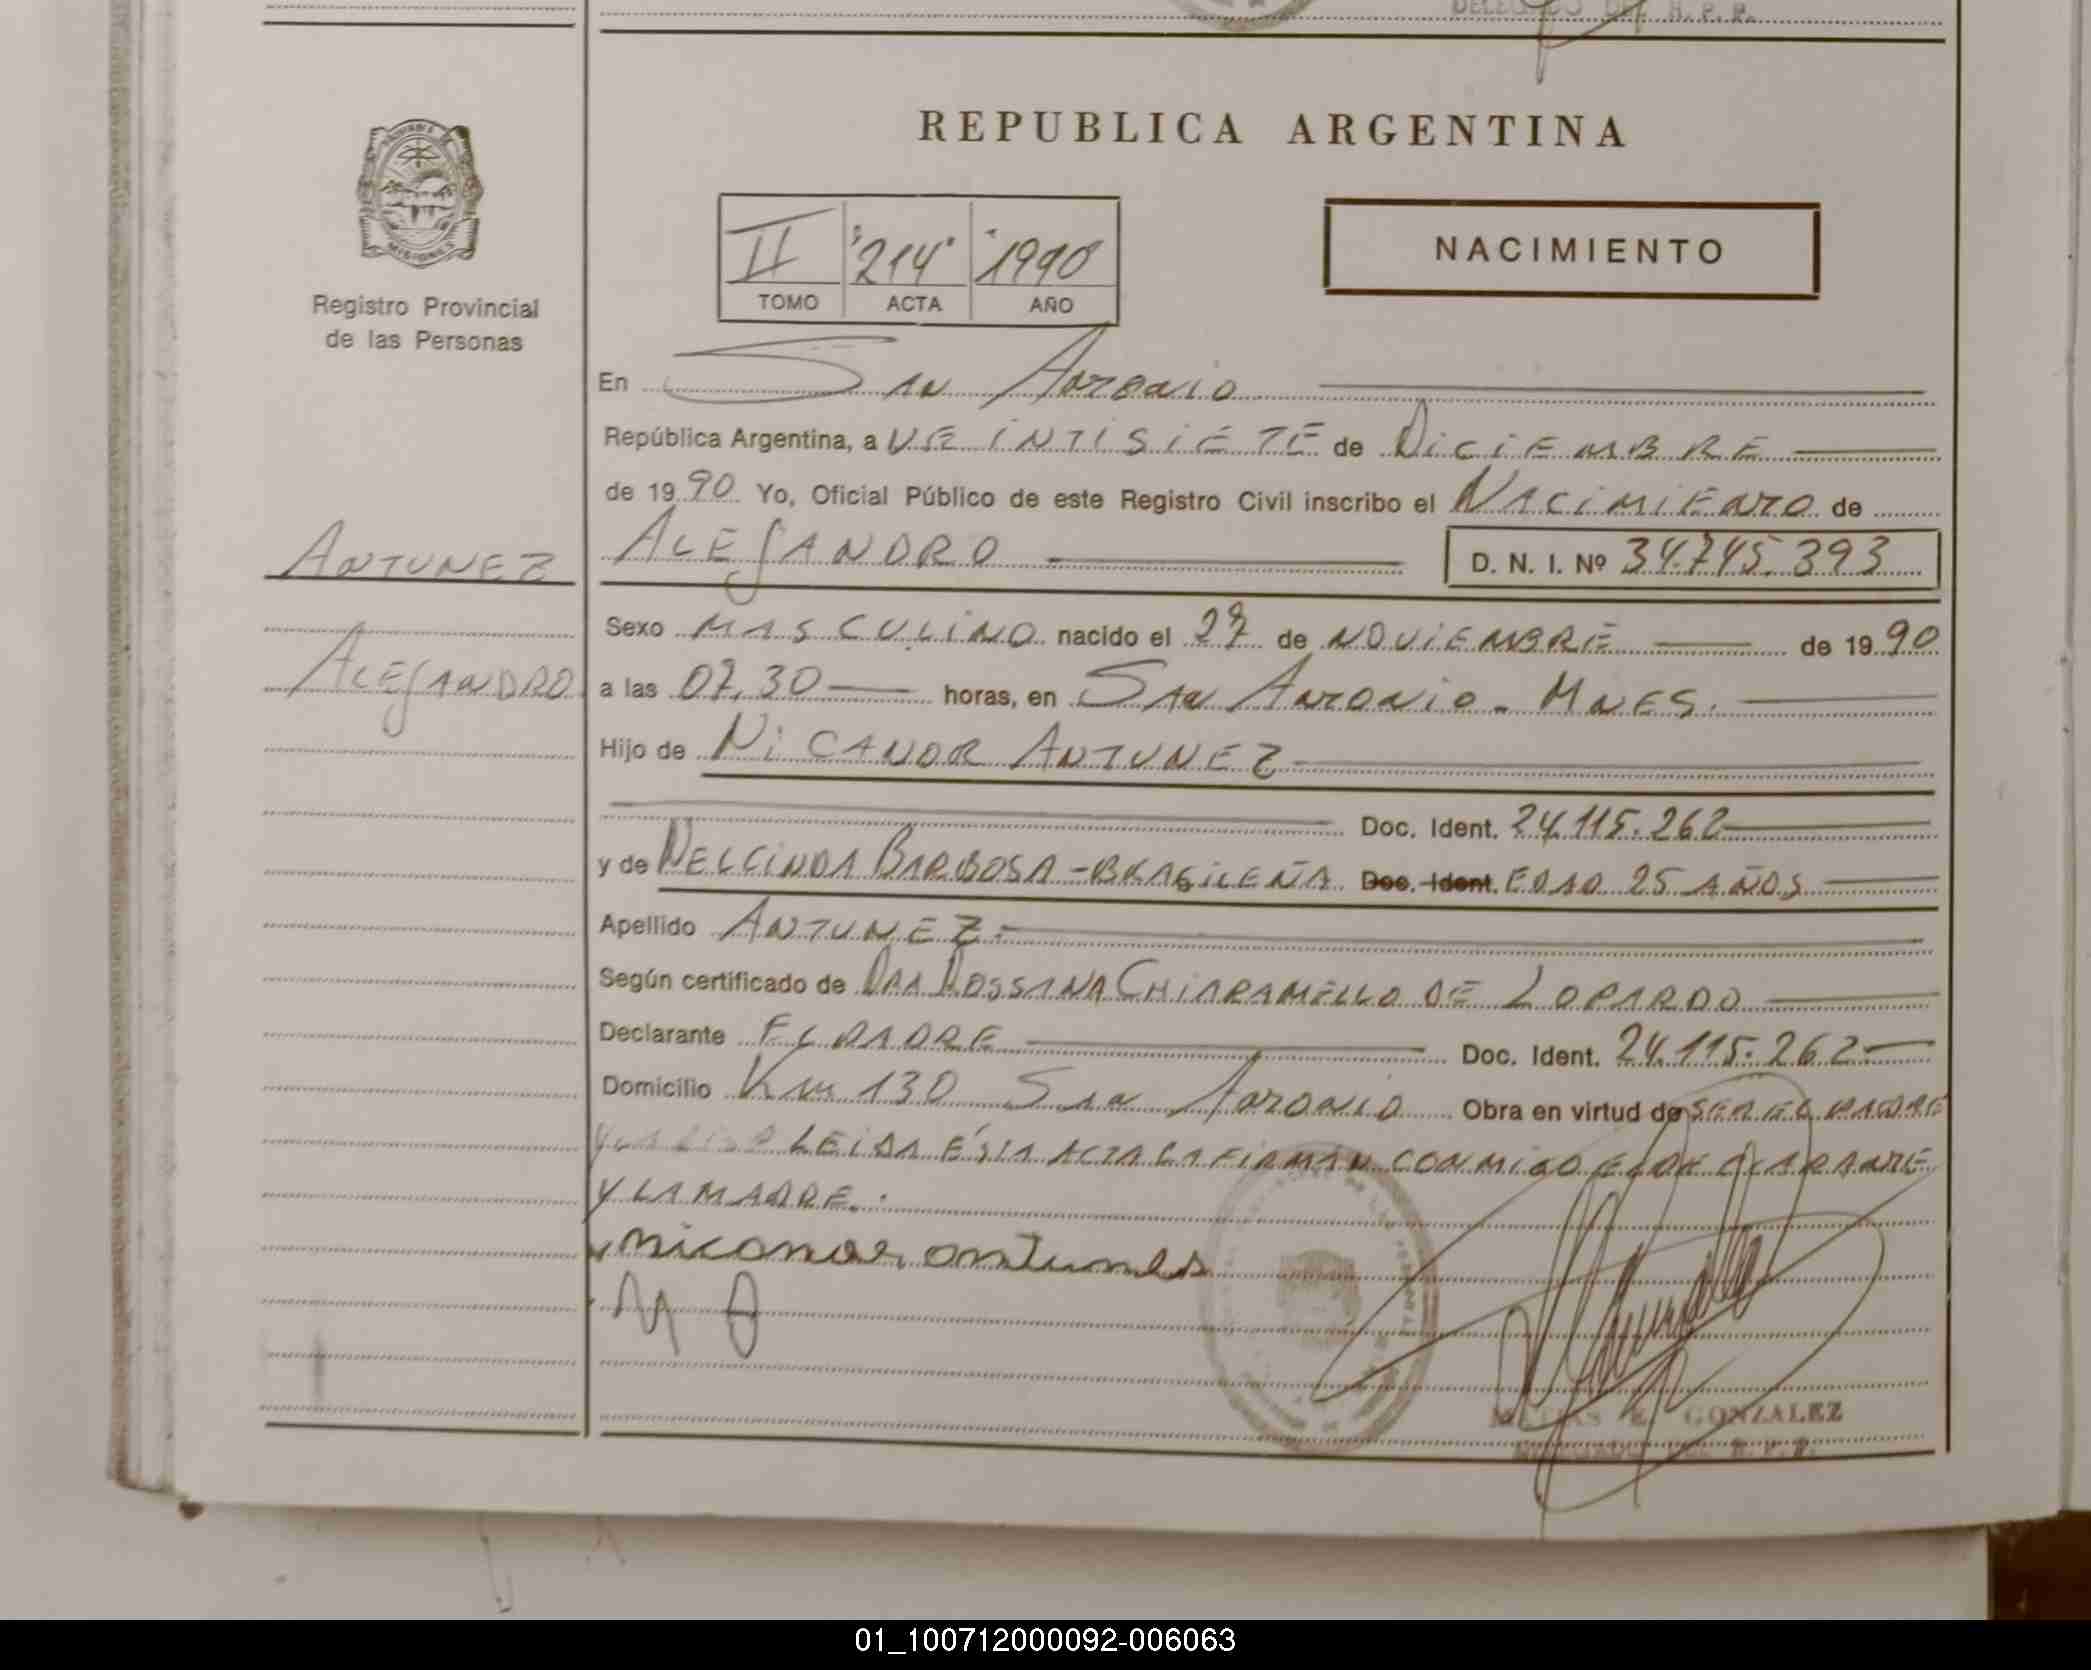 DELEGADO DEL R.P.P.
REPUBLICA ARGENTINA
MISIONES
Registro Provincial
de las Personas
II "214" "1990
TOMO ACTA AÑO
NACIMIENTO
En San Antonio
República Argentina, a VEINTISIETE de DiCiEMBRE
de 1990 Yo, Oficial Público de este Registro Civil inscribo el NACiMiENTO de
ANTUNEZ
ALEJANDRO
D. N. I. Nº 34.745.393
Sexo MASCULiNO nacido el 27 de NOViEMBRE de 1990
ALEJANDRO
a las 07,30 horas, en SAN ANTONio. MNES.
Hijo de NiCANOR ANTUNEZ
Doc. Ident. 24.115.262
y de NELCiNDA BARBOSA-BRASiLEÑA Doc. Ident. EDAD 25 AÑOS
Apellido ANTUNEZ
Según certificado de DRA ROSSANA CHiARAMELLO DE LOPARDO
Declarante EL PADRE Doc. Ident. 24.115.262
Domicilio Km 130 San Antonio Obra en virtud de SER EL PADRE
LEiDA ÉSTA ACTA LA FiRMAN CONMiGO EL DECLARANTE
Y LA MADRE.
nicanor antunes
N B
MATIAS E. GONZALEZ
DELEGADO DEL R.P.P.
01_100712000092-006063